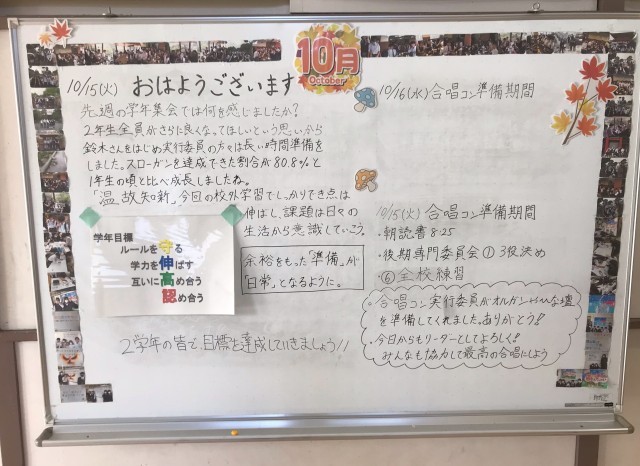 10月
October
10/15(火) おはようございます
先週の学年集会では何を感じましたか?
2年生全員がさらに良くなってほしいという思いから
鈴木さんをはじめ実行委員の方々は長い時間準備を
しました。スローガンを達成できた割合が80.8%と
1年生の頃と比べ成長しましたね。
「温故知新」今回の校外学習でしっかりできた点は
伸ばし、課題は日々の
生活から意識していこう。
学年目標
ルールを守る
学力を伸ばす
互いに高め合う
認め合う
余裕をもった「準備」が
「日常」となるように。
2学年の皆で、目標を達成していきましょう!!
10/16(水) 合唱コン準備期間
10/15(火) 合唱コン準備期間
・朝読書 8:25
・後期専門委員会① 3役決め
・⑥全校練習
・合唱コン実行委員がオルガンや
を準備してくれました。ありがとう!!
・今日からもリーダーとしてよろしく!!
みんなも協力して最高の合唱にしよう